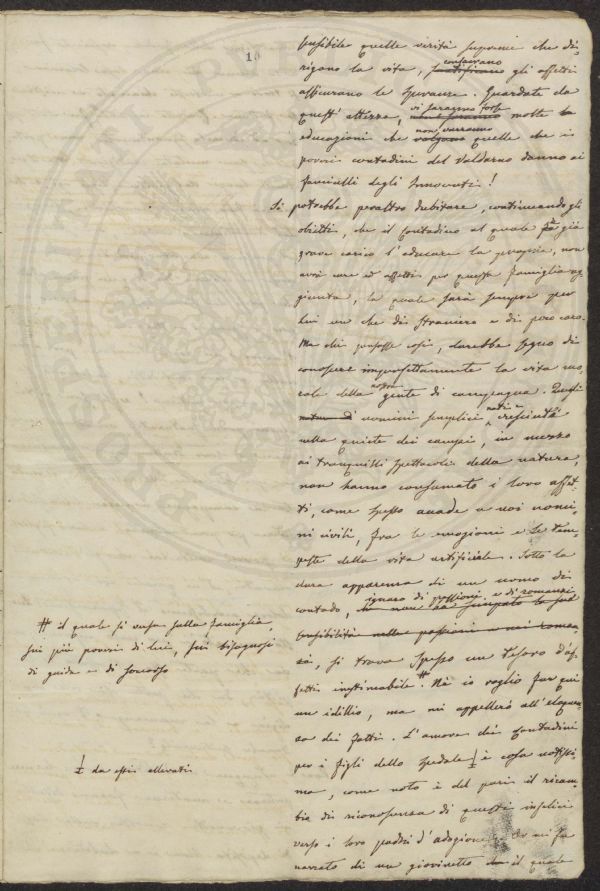 18
sensibile quelle verità supreme che di-
rigono la vita, consacrano gli affetti
assicurano le speranze. Guardate da
quest'altezza, vi saranno forse molte
educazioni che non varranno quelle che i
poveri contadini del Valdarno danno ai
fanciulli degli Innocenti!
Si potrebbe peraltro dubitare, continuando gli
obietti, che il Contadino al quale fa già
grave carico l'educare la propria, non
avrà cure ed affetti per questa famiglia ag-
giunta, la quale sarà sempre per
lui un che di straniero e di poco caro.
Ma chi pensasse così, darebbe segno di
conoscere imperfettamente la vita mo-
rale della nostra gente di campagna. Quegli
uomini semplici, nati e cresciuti
nella quiete dei campi, in mezzo
ai tranquilli spettacoli della natura,
non hanno consumato i loro affet-
ti, come spesso accade a noi uomi-
ni civili, fra le emozioni e le tem-
peste della vita artificiale. Sotto la
dura apparenza di un uomo di
contado, ignaro di passioni e di romanzi
si trova spesso un tesoro d'af-
fetti inestimabile #. Nè io voglio far qui
un idillio, ma mi appellerò all'eloquen-
za dei fatti. L'amore dei Contadini
per i figli dello Spedale è cosa notissi-
ma, come noto è del pari il ricam-
bio di riconoscenza di questi infelici
verso i loro padri d'adozione
narrato di un giovinetto il quale
# il quale si versa sulla famiglia,
sui più poveri di lui, sui bisognosi
di guida e di soccorso
da essi allevati